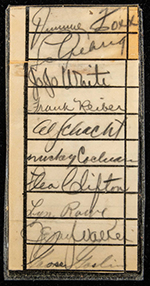 Jimmie Foxx
Jo Jo White
Frank Reiber
Al Schacht
Mickey Cochrane
Flea Clifton
Lyn Rowe
Gee Walker